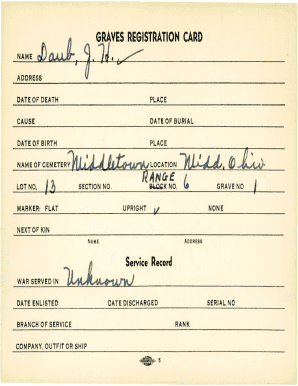 GRAVES REGISTRATION CARD
NAME Daub, J. H. ✓
ADDRESS
DATE OF DEATH PLACE
CAUSE DATE OF BURIAL
DATE OF BIRTH PLACE
NAME OF CEMETERY Middletown LOCATION Midd, Ohio
RANGE
LOT NO. 13 SECTION NO. BLOCK NO. 6 GRAVE NO 1
MARKER: FLAT UPRIGHT ✓ NONE
NEXT OF KIN
NAME ADDRESS
Service Record
WAR SERVED IN Unknown
DATE ENLISTED DATE DISCHARGED SERIAL NO
BRANCH OF SERVICE RANK
COMPANY, OUTFIT OR SHIP
5